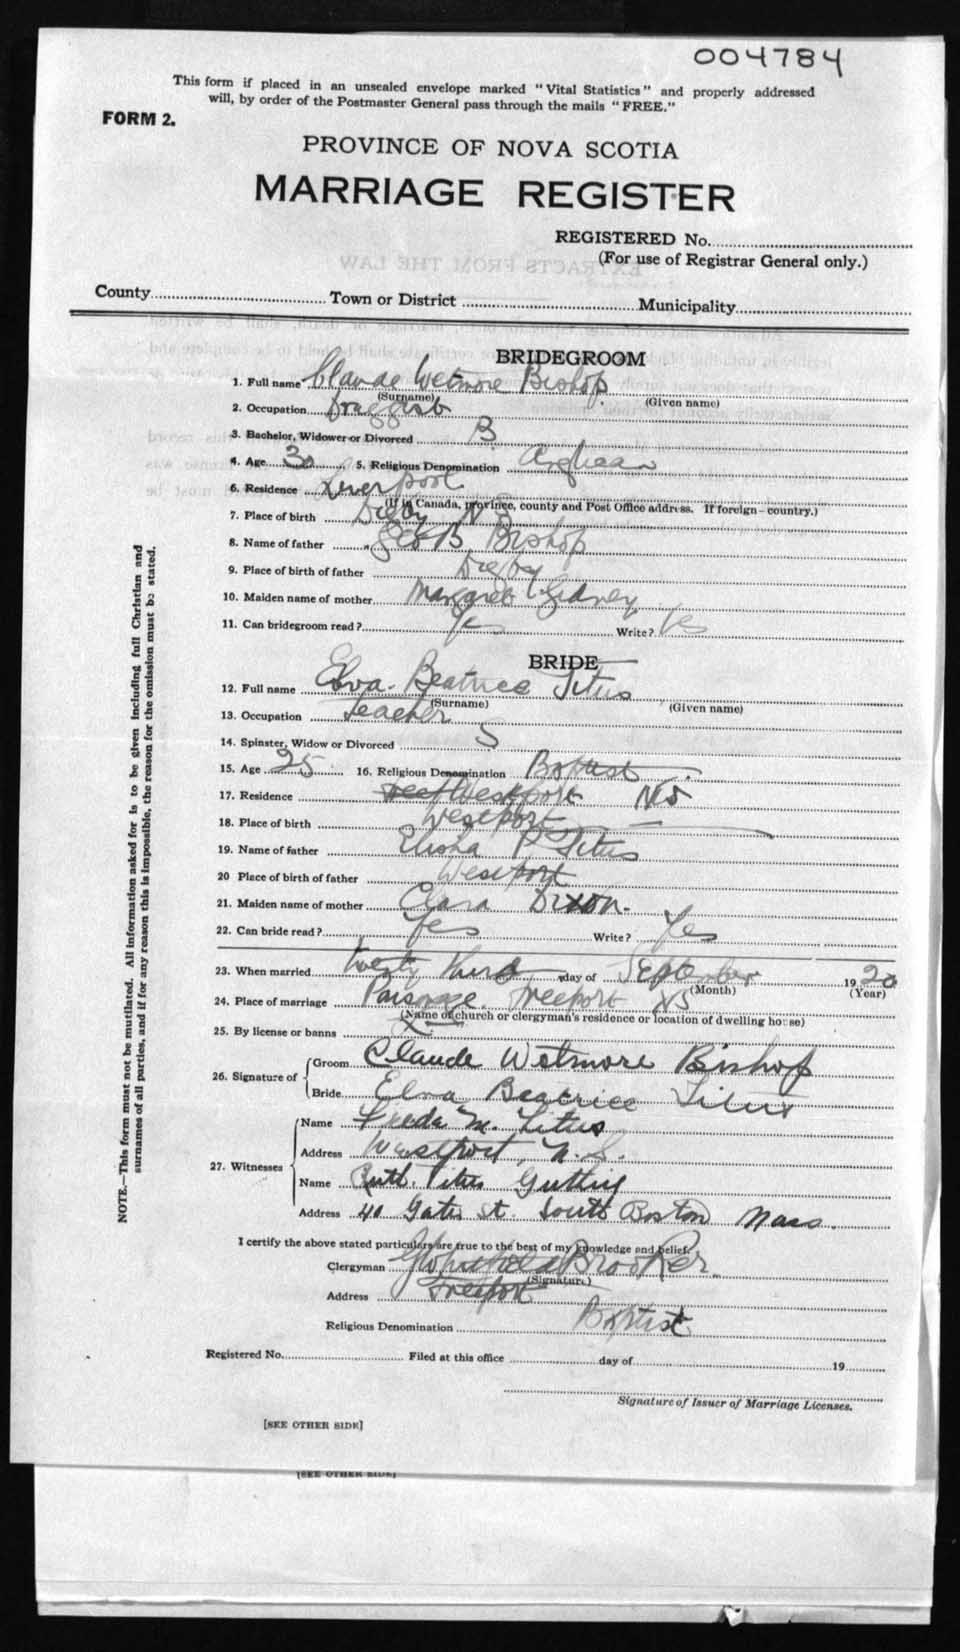 004784
This form if placed in an unsealed envelope marked "Vital Statistics" and properly addressed
will, by order of the Postmaster General pass through the mails "FREE."
FORM 2.
PROVINCE OF NOVA SCOTIA
MARRIAGE REGISTER
REGISTERED No.
(For use of Registrar General only.)
EXTRACTS FROM THE LAW
County Town or District Municipality
BRIDEGROOM
1. Full name Claude Wetmore Bishop
(Surname) (Given name)
2. Occupation Druggist
3. Bachelor, Widower or Divorced B
4. Age 30 5. Religious Denomination Anglican
6. Residence Liverpool
(If in Canada, province, county and Post Office address. If foreign—country.)
7. Place of birth Digby NS
8. Name of father Geo B Bishop
9. Place of birth of father Digby
10. Maiden name of mother Margaret Gidney
11. Can bridegroom read? Yes Write? Yes
BRIDE
12. Full name Elva Beatrice Titus
(Surname) (Given name)
13. Occupation Teacher
14. Spinster, Widow or Divorced S
15. Age 25 16. Religious Denomination Baptist
17. Residence Westport NS
18. Place of birth Westport
19. Name of father Elisha P Titus
20 Place of birth of father Westport
21. Maiden name of mother Clara Dixon
22. Can bride read? Yes Write? Yes
23. When married twenty third day of September 1920
(Month) (Year)
24. Place of marriage Parsonage Freeport NS
(Name of church or clergyman's residence or location of dwelling house)
25. By license or banns L
26. Signature of Groom Claude Wetmore Bishop
Bride Elva Beatrice Titus
27. Witnesses Name M. Titus
Address Westport, N.S.
Name Ruth Titus
Address 40 Gates St. South Boston Mass.
I certify the above stated particulars are true to the best of my knowledge and belief.
Clergyman Brooker
(Signature)
Address Freeport
Religious Denomination Baptist
Registered No. Filed at this office day of 19
Signature of Issuer of Marriage Licenses.
[SEE OTHER SIDE]
[SEE OTHER SIDE]
NOTE.—This form must not be mutilated. All information asked for is to be given including full Christian and
surnames of all parties, and if for any reason this is impossible, the reason for the omission must be stated.